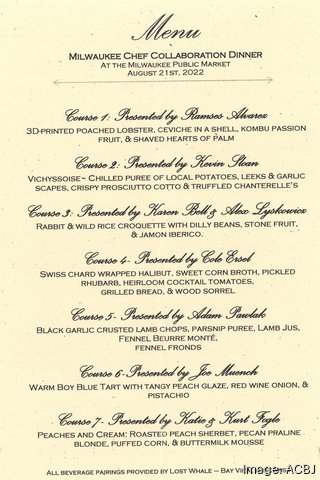 Menu
Milwaukee Chef Collaboration Dinner
At the Milwaukee Public Market
August 21st, 2022
Course 1: Presented by Ramses Alvarez
3D-printed poached lobster, ceviche in a shell, kombu passion
fruit, & shaved hearts of palm
Course 2: Presented by Kevin Sloan
Vichyssoise~ Chilled puree of local potatoes, leeks & garlic
scapes, crispy prosciutto cotto & truffled chanterelle's
Course 3: Presented by Karen Bell & Alex Lyskowicz
Rabbit & wild rice croquette with dilly beans, stone fruit,
& jamon iberico.
Course 4- Presented by Cole Ersel
Swiss chard wrapped halibut, sweet corn broth, pickled
rhubarb, heirloom cocktail tomatoes,
grilled bread, & wood sorrel
Course 5- Presented by Adam Pawlak
Black garlic crusted lamb chops, parsnip puree, Lamb Jus,
Fennel Beurre monté,
fennel fronds
Course 6-Presented by Joe Muench
Warm Boy Blue Tart with tangy peach glaze, red wine onion, &
pistachio
Course 7- Presented by Katie & Kurt Fogle
Peaches and Cream: Roasted peach sherbet, pecan praline
blonde, puffed corn, & buttermilk mousse
All beverage pairings provided by Lost Whale – Bay
Image: ACBJ